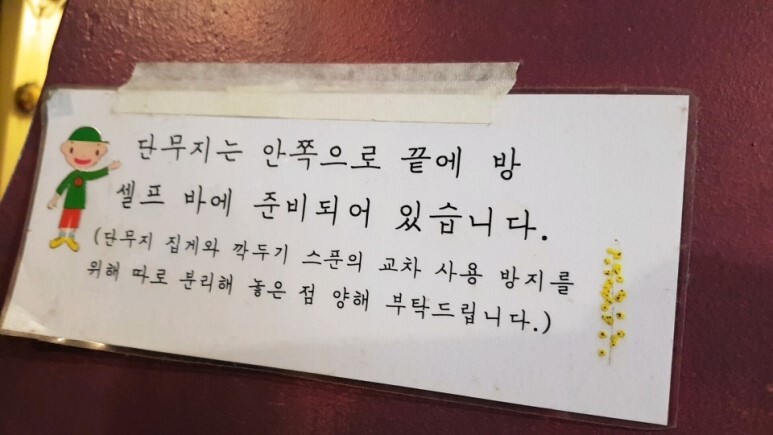 단무지는 안쪽으로 끝에 방
셀프 바에 준비되어 있습니다.
(단무지 집게와 깍두기 스푼의 교차 사용 방지를
위해 따로 분리해 놓은 점 양해 부탁드립니다.)